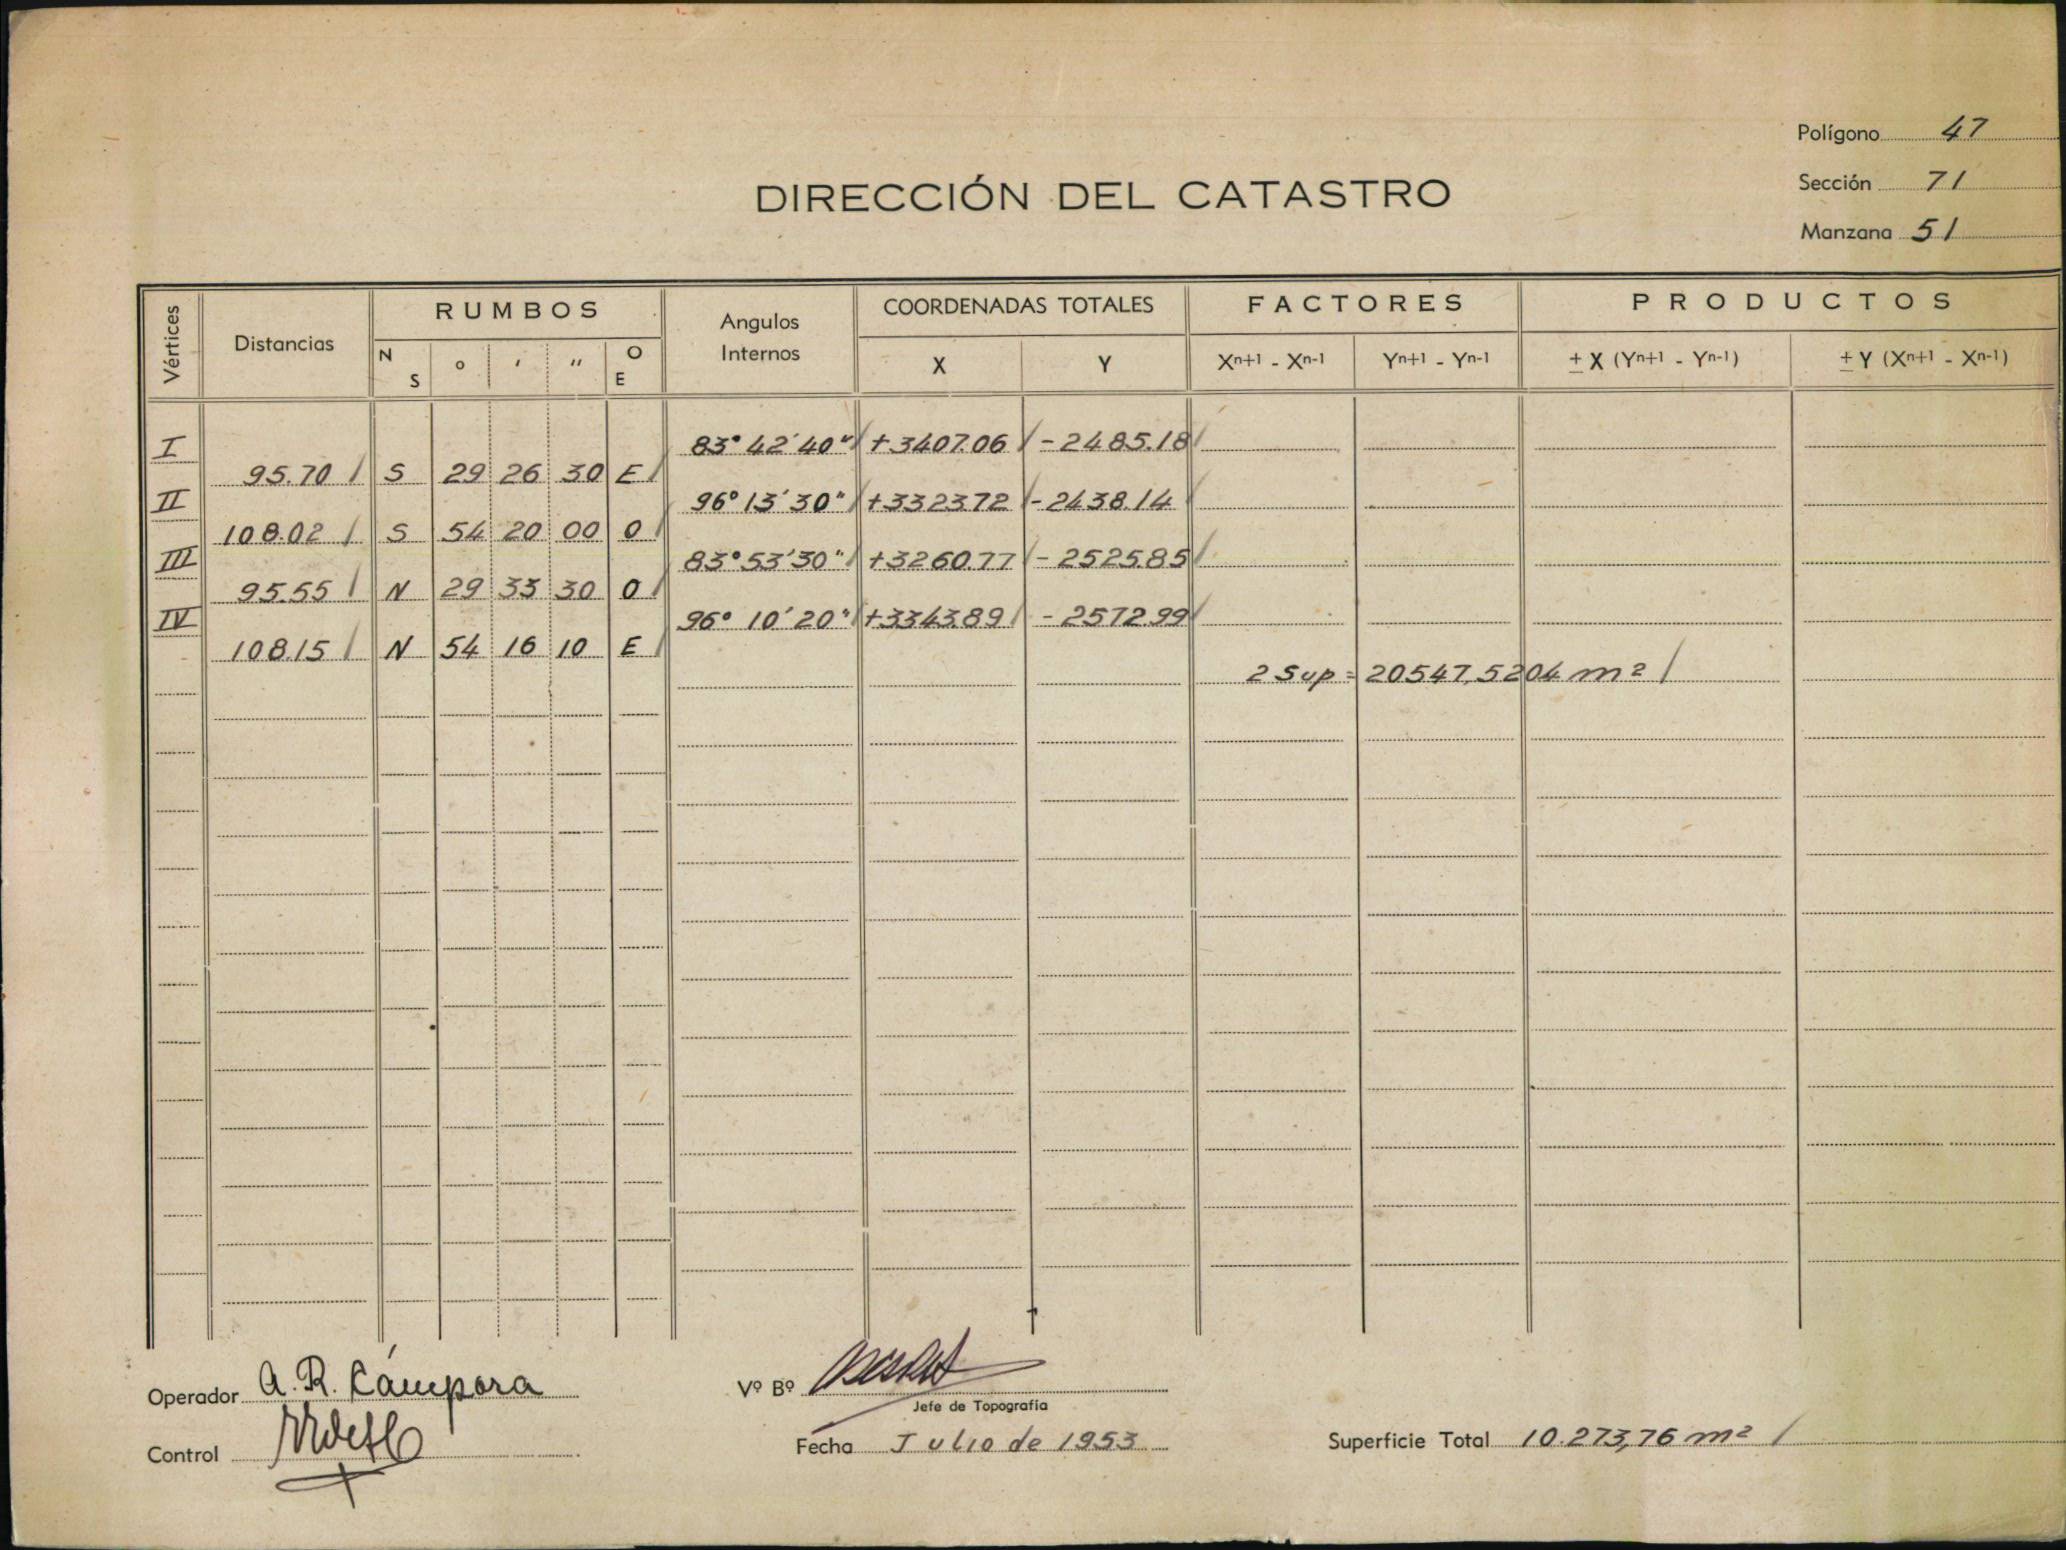 Polígono 47
Sección 71
Manzana 51
DIRECCIÓN DEL CATASTRO
Vértices Distancias RUMBOS Angulos Internos COORDENADAS TOTALES FACTORES PRODUCTOS
N S ° ' " O E X Y Xn+1 - Xn-1 Yn+1 - Yn-1 ± X (Yn+1 - Yn-1) ± Y (Xn+1 - Xn-1)
I 83° 42' 40" / +3407.06 / -2485.18 /
95.70 / S 29 26 30 E /
II 96° 13' 30" / +3323.72 / -2438.14 /
108.02 / S 54 20 00 O /
III 83° 53' 30" / +3260.77 / -2525.85 /
95.55 / N 29 33 30 O /
IV 96° 10' 20" / +3343.89 / -2572.99 /
108.15 / N 54 16 10 E /
2 Sup = 20547,5204 m² /
Operador A. R. Cámpora
Control
Vº Bº
Jefe de Topografía
Fecha Julio de 1953
Superficie Total 10.273,76 m² /